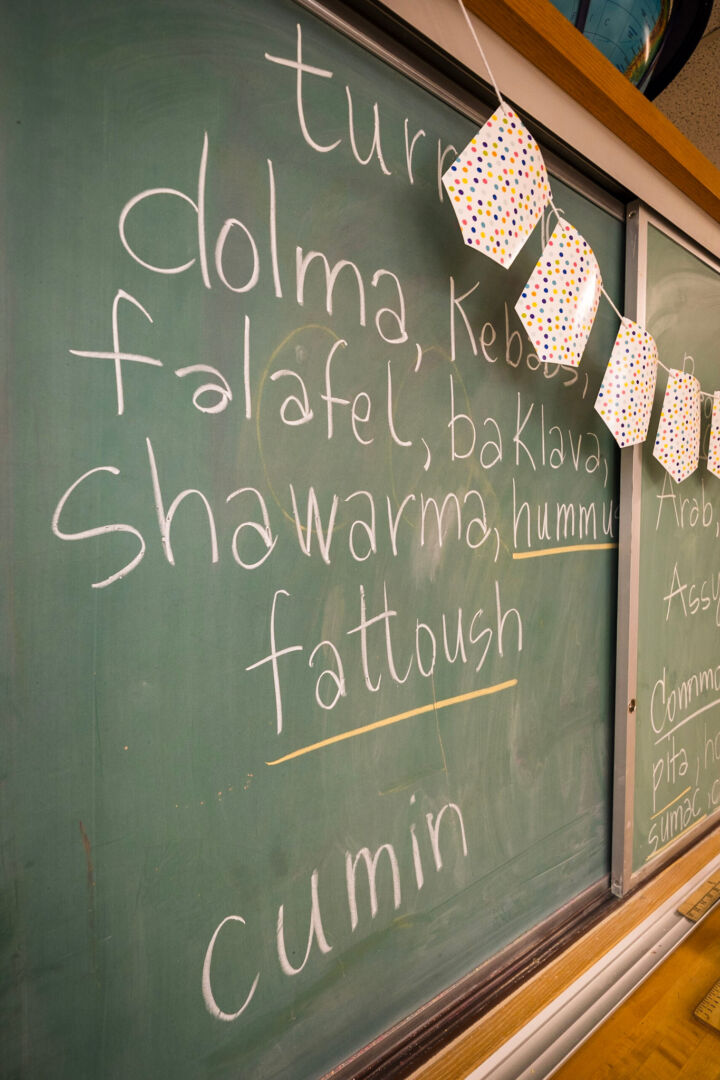 dolma, Kebabs,
falafel, baklava,
Shawarma, hummus
fattoush
cumin
Arab,
pita,
sumac,